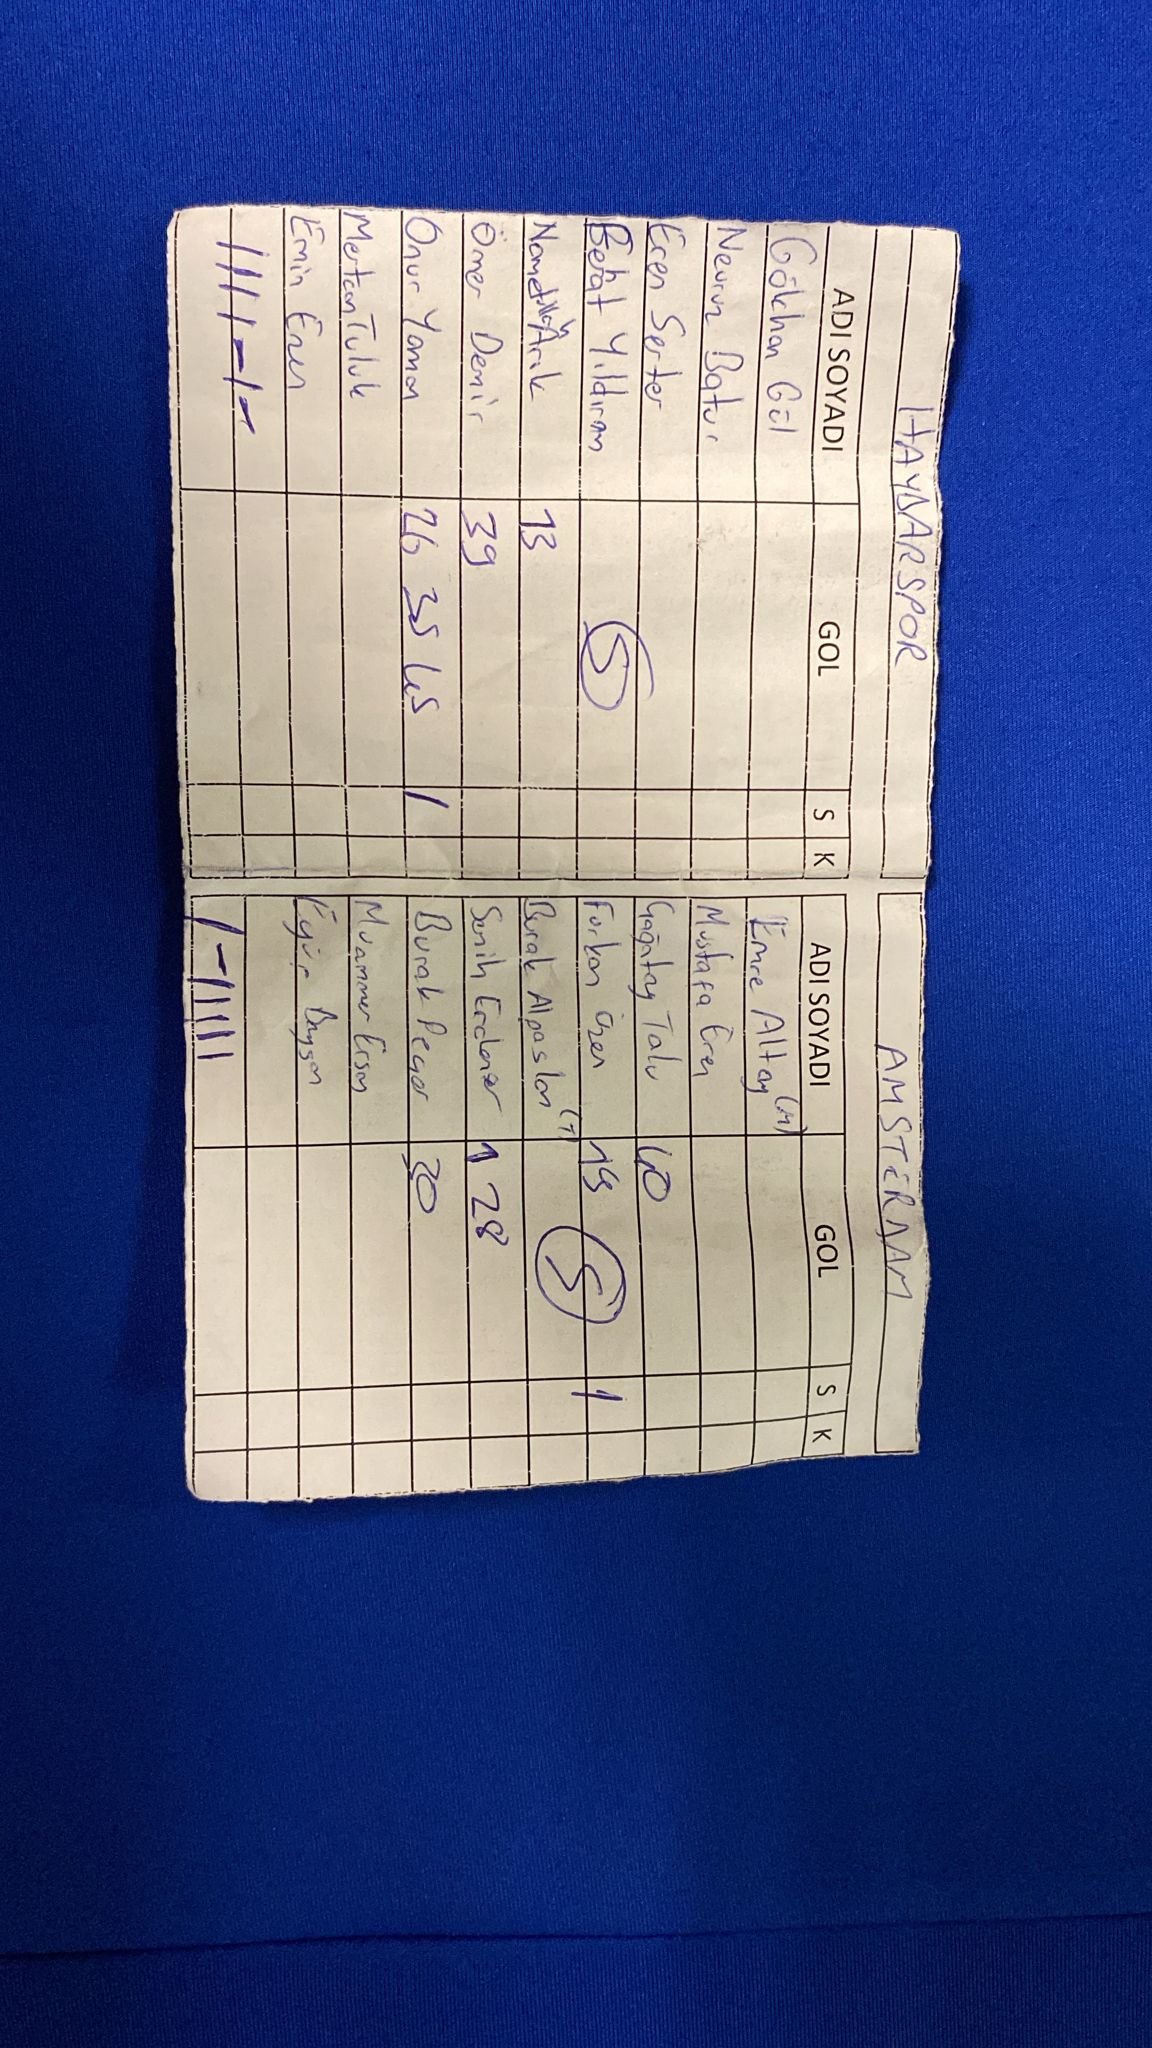 HAYDARSPOR
ADI SOYADI GOL S K
Gökhan Gül
Nevruz Batur
Eren Serter
Berat Yıldırım 5
Arık 13
Ömer Demir 39
Onur Yaman 26 35 45 /
Mertcan Tuluk
Emin Eren
AMSTERDAM
ADI SOYADI GOL S K
Emre Altay (M)
Mustafa Eren
Çağatay Talu 40
Furkan Özen 19 /
Burak Alpaslan (7) 5
Semih 1 28
Burak 30
Muammer Ersoy
Eyüp